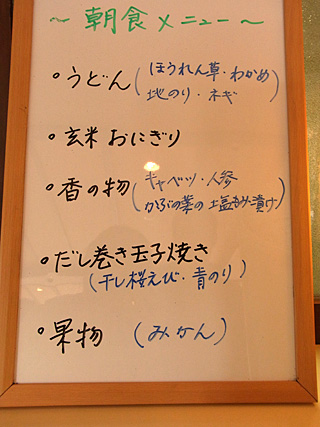 ～ 朝食メニュー ～
・うどん(ほうれん草・わかめ
地のり・ネギ)
・玄米おにぎり
・香の物(キャベツ・人参
かぶの葉の塩もみ漬け)
・だし巻き玉子焼き
(干し桜えび・青のり)
・果物 (みかん)